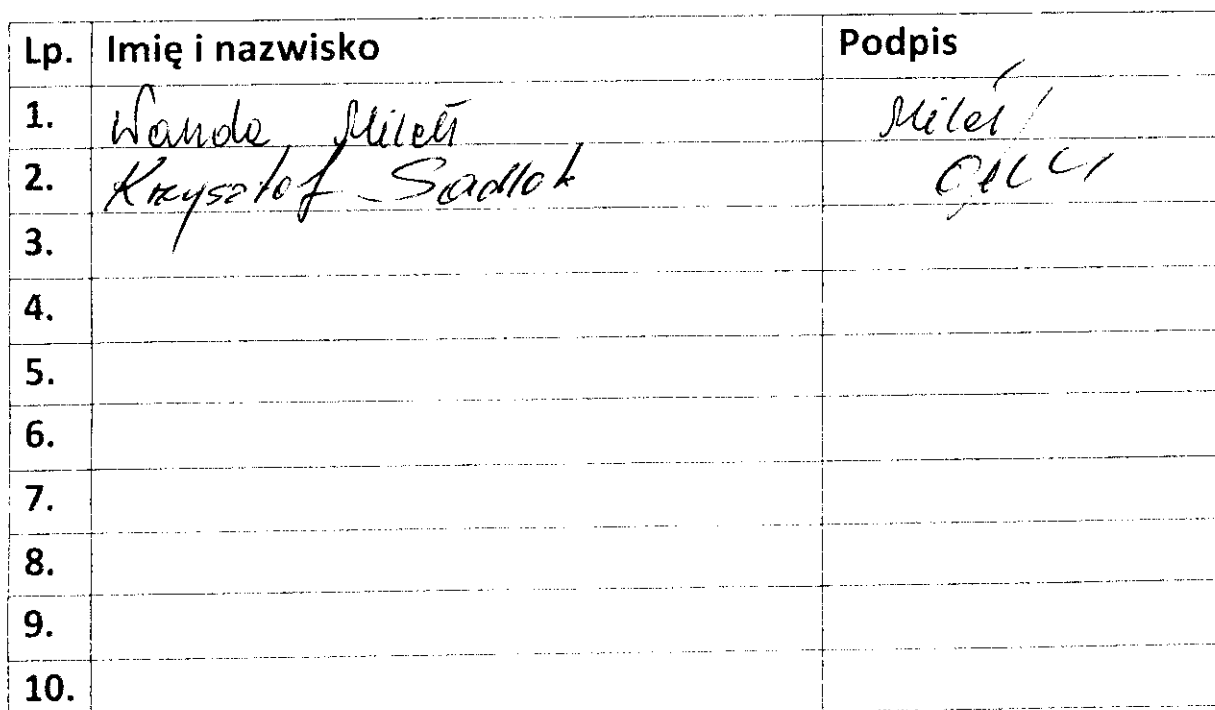 Lp. Imię i nazwisko Podpis
1. Wanda Mileń
2. Krzysztof Sadlok
3.
4.
5.
6.
7.
8.
9.
10.